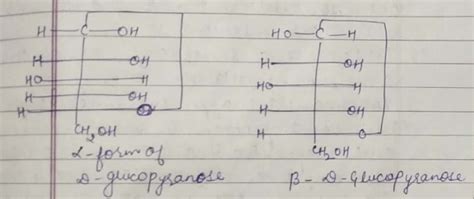 H C OH HO C H
H OH H OH
HO H HO H
H OH H OH
H O H O
CH2OH CH2OH
α-form of
D-glucopyranose β-D-Glucopyranose